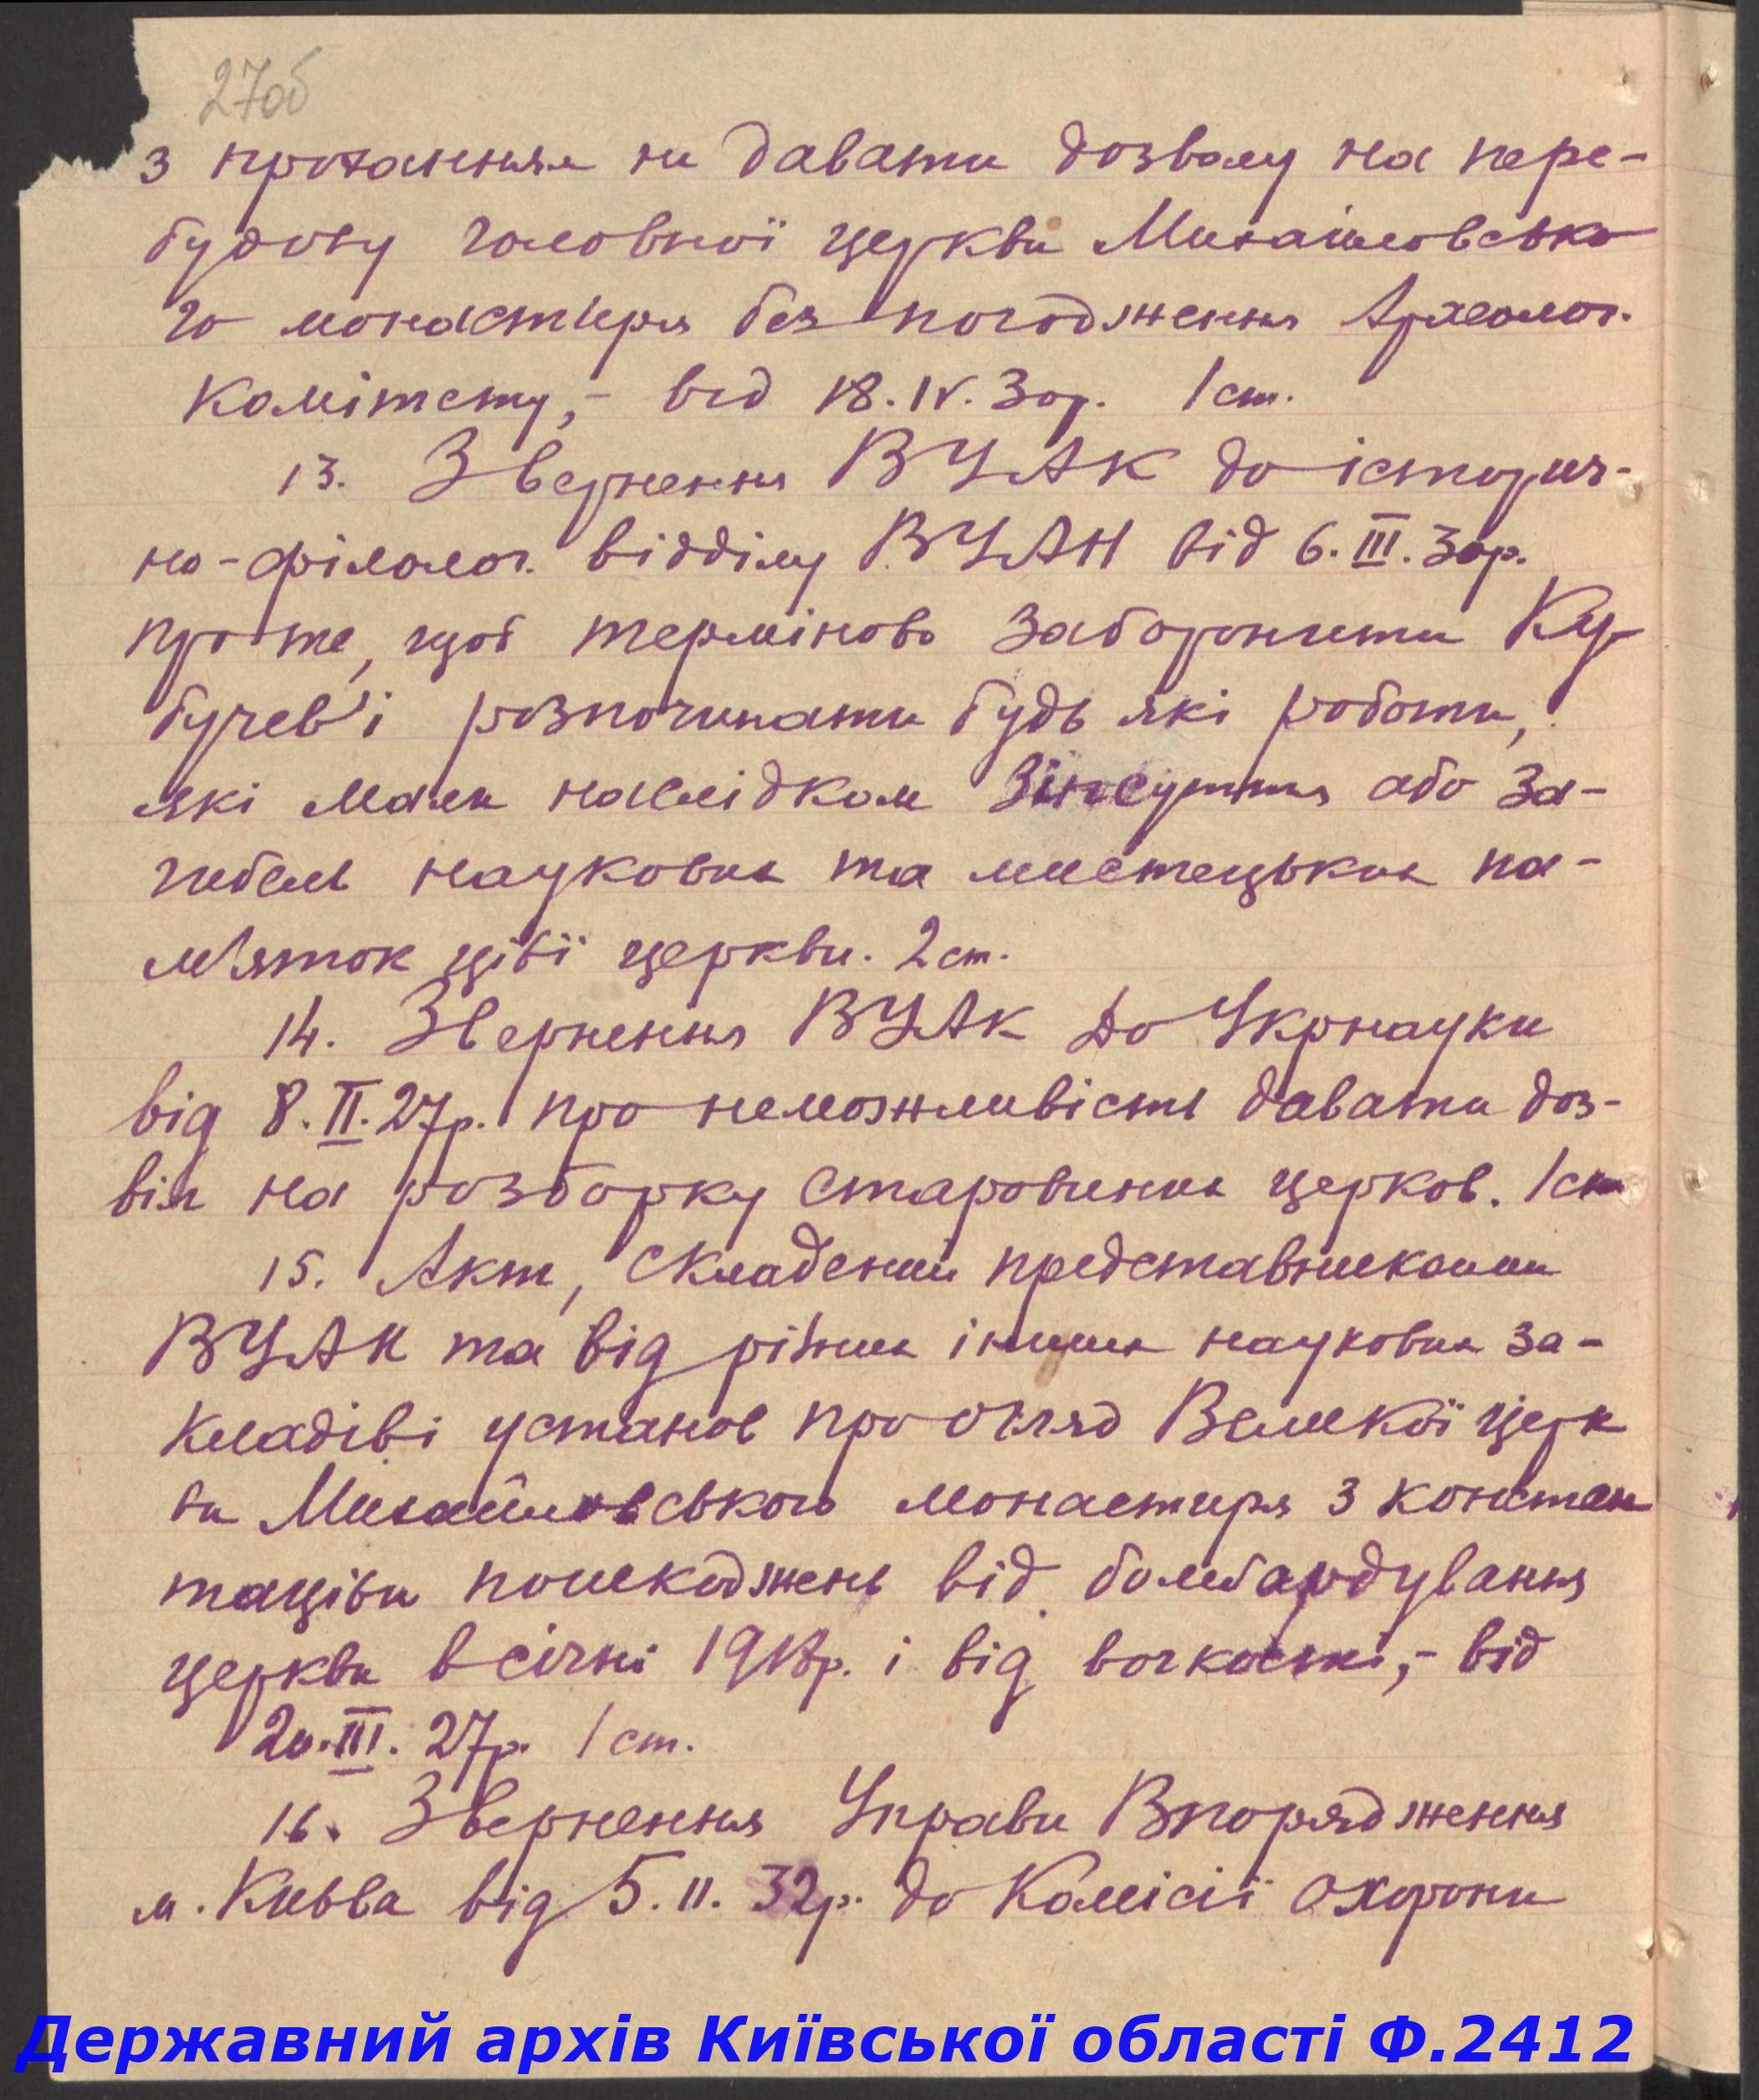 27об
з проханням не давати дозволу на пере-
будову головної церкви Михайловсько
го монастиря без погодження Археолог.
Комітету,- від 18.IV.30р. 1 ст.
13. Звернення ВУАК до історич-
но-філолог. відділу ВУАН від 6.III.30р.
про те, щоб терміново заборонити Ку
бучев'і розпочинати будь які роботи,
які мали наслідком Зіпсуття або за-
гибель наукових та мистецьких па-
м'яток цієї церкви. 2 ст.
14. Звернення ВУАК до Укрнауки
від 8.II.27р. про неможливість давати доз-
віл на розборку старовинних церков. 1 ст
15. Акт, складений представниками
ВУАК та від різних інших наукових за-
кладів і установ про огляд Великої церк
ви Михайловського монастиря з констан
тацією пошкоджень від бомбардування
церкви в січні 1918р. і від вогкости,- від
20.III.27р. 1 ст.
16. Звернення Управи Впорядження
м. Києва від 5.II.32р. до Комісії охорони
Державний архів Київської області Ф.2412